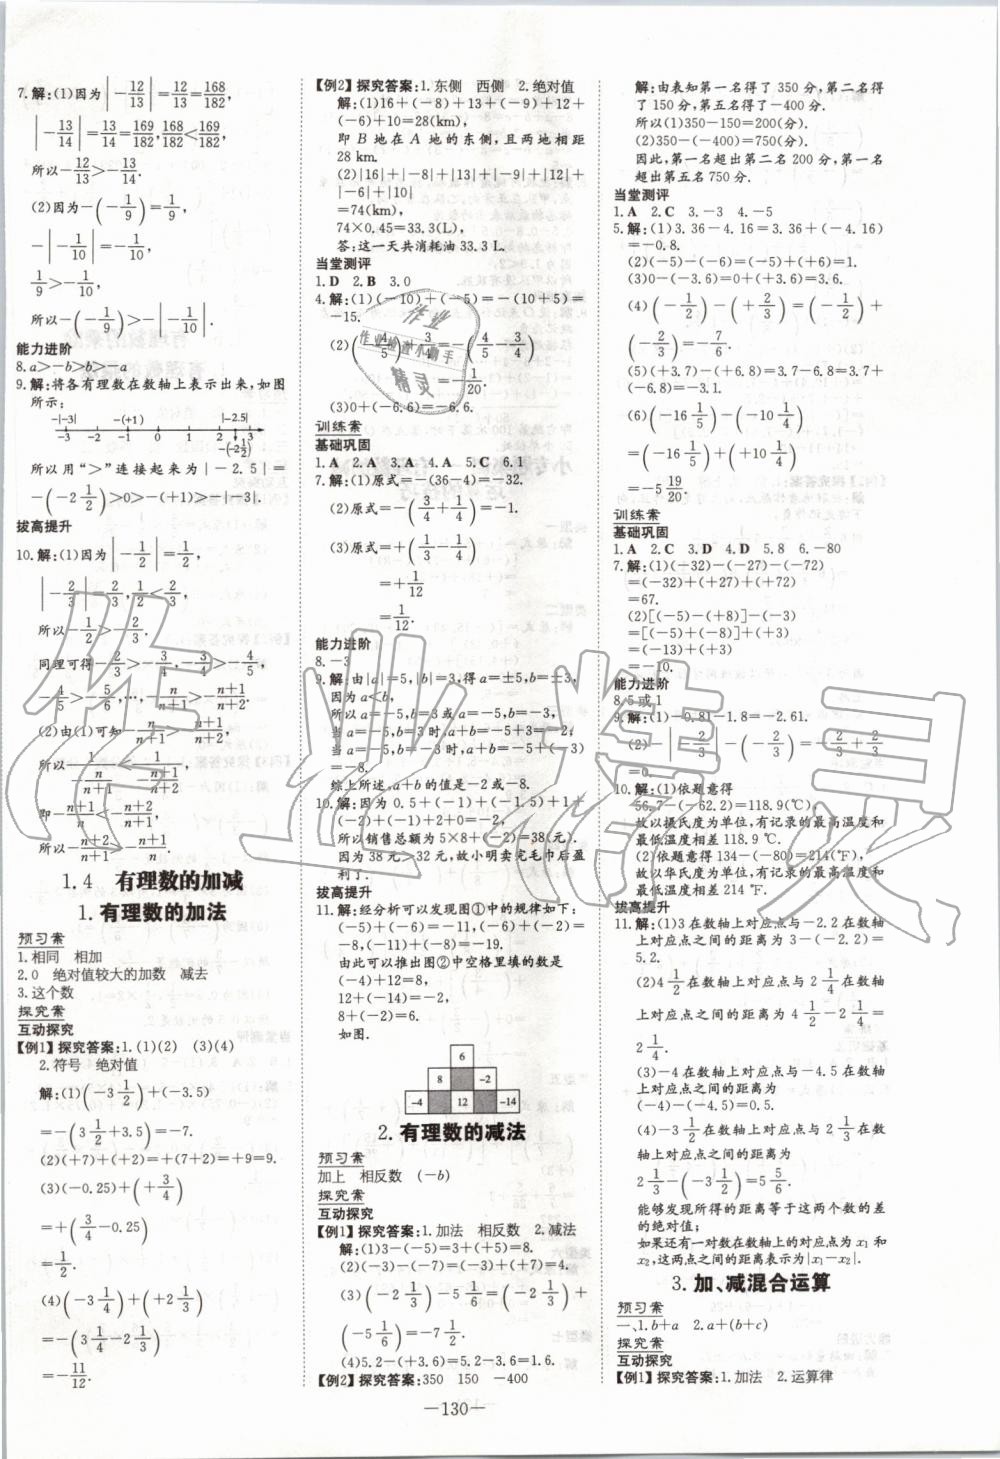 7.解:(1)因为|-12/13|=12/13=168/182,
|-13/14|=13/14=169/182,168/182<169/182,
所以-12/13>-13/14.
(2)因为-(-1/9)=1/9,
-|-1/10|=-1/10,
1/9>-1/10,
所以-(-1/9)>-|-1/10|.
能力进阶
8.a>-b>b>-a
9.解:将各有理数在数轴上表示出来,如图
所示:
-|-3| -(+1) |-2.5|
-3 -2 -1 0 1 2 3
-(-2 1/2)
所以用“>”连接起来为|-2.5|=
-(-2 1/2)>0>-(+1)>-|-3|.
拔高提升
10.解:(1)因为|-1/2|=1/2,
|-2/3|=2/3,1/2<2/3,
所以-1/2>-2/3.
同理可得-2/3>-3/4,-3/4>-4/5,
-4/5>-5/6,…,-n/(n+1)>-(n+1)/(n+2).
(2)由(1)可知-n/(n+1)>-(n+1)/(n+2),
即-(n+1)/n<-(n+2)/(n+1),
所以-(n+2)/(n+1)>-(n+1)/n.
1.4 有理数的加减
1.有理数的加法
预习案
1.相同 相加
2.0 绝对值较大的加数 减去
3.这个数
探究案
互动探究
【例1】探究答案:1.(1)(2) (3)(4)
2.符号 绝对值
解:(1)(-3 1/2)+(-3.5)
=-(3 1/2+3.5)=-7.
(2)(+7)+(+2)=+(7+2)=+9=9.
(3)(-0.25)+(+3/4)
=+(3/4-0.25)
=1/2.
(4)(-3 1/4)+(+2 1/3)
=-(3 1/4-2 1/3)
=-11/12.
【例2】探究答案:1.东侧 西侧 2.绝对值
解:(1)16+(-8)+13+(-9)+12+
(-6)+10=28(km),
即B地在A地的东侧,且两地相距
28 km.
(2)|16|+|-8|+|13|+|-9|+|12|+
|-6|+|10|
=74(km),
74×0.45=33.3(L),
答:这一天共消耗油33.3 L.
当堂测评
1.D 2.B 3.0
4.解:(1)(-10)+(-5)=-(10+5)=
-15.
(2)(-4/5)+3/4=-(4/5-3/4)
=-1/20.
(3)0+(-6.6)=-6.6.
训练案
基础巩固
1.A 2.A 3.A 4.A 5.C 6.1
7.解:(1)原式=-(36-4)=-32.
(2)原式=-(3/4+1/4)=-1.
(3)原式=+(1/3-1/4)
=+1/12
=1/12.
能力进阶
8.-3
9.解:由|a|=5,|b|=3,得a=±5,b=±3,
因为a<b,
所以a=-5,b=3或a=-5,b=-3,
当a=-5,b=3时,a+b=-5+3=-2;
当a=-5,b=-3时,a+b=-5+(-3)
=-8.
综上所述,a+b的值是-2或-8.
10.解:因为0.5+(-1)+(-1.5)+1+
(-2)+(-1)+2+0=-2,
所以销售总额为5×8+(-2)=38(元).
因为38元>32元,故小明卖完毛巾后盈
利了.
拔高提升
11.解:经分析可以发现图①中的规律如下:
(-5)+(-6)=-11,(-6)+(-2)=
-8,(-11)+(-8)=-19.
由此可以推出图②中空格里填的数是
(-4)+12=8,
12+(-14)=-2,
8+(-2)=6.
如图.
6
8 -2
-4 12 -14
2.有理数的减法
预习案
加上 相反数 (-b)
探究案
互动探究
【例1】探究答案:1.加法 相反数 2.减法
解:(1)3-(-5)=3+(+5)=8.
(2)(-3)-(-7)=(-3)+(+7)=4.
(3)(-2 1/3)-5 1/6=(-2 1/3)+
(-5 1/6)=-7 1/2.
(4)5.2-(+3.6)=5.2-3.6=1.6.
【例2】探究答案:350 150 -400
解:由表知第一名得了350分,第二名得
了150分,第五名得了-400分.
所以(1)350-150=200(分).
(2)350-(-400)=750(分).
因此,第一名超出第二名200分,第一名
超出第五名750分.
当堂测评
1.A 2.C 3.-3 4.-5
5.解:(1)3.36-4.16=3.36+(-4.16)
=-0.8.
(2)(-5)-(-6)=(-5)+(+6)=1.
(3)0-(-3.6)=0+(+3.6)=3.6.
(4)(-1/2)-(+2/3)=(-1/2)+
(-2/3)=-7/6.
(5)(+3.7)-(+6.8)=3.7-6.8=3.7+
(-6.8)=-3.1.
(6)(-16 1/5)-(-10 1/4)
=(-16 1/5)+(+10 1/4)
=-5 19/20.
训练案
基础巩固
1.A 2.C 3.D 4.D 5.8 6.-80
7.解:(1)(-32)-(-27)-(-72)
=(-32)+(+27)+(+72)
=67.
(2)[(-5)-(+8)]-(-3)
=[(-5)+(-8)]+(+3)
=(-13)+(+3)
=-10.
能力进阶
8.5或1
9.解:(1)-0.81-1.8=-2.61.
(2)-|-2/3|-(-2/3)=-2/3+2/3
=0.
10.解:(1)依题意得
56.7-(-62.2)=118.9(℃),
故以摄氏度为单位,有记录的最高温度和
最低温度相差118.9 ℃.
(2)依题意得134-(-80)=214(℉),
故以华氏度为单位,有记录的最高温度和
最低温度相差214 ℉.
拔高提升
11.解:(1)3在数轴上对应点与-2.2在数轴
上对应点之间的距离为3-(-2.2)=
5.2.
(2)4 1/2在数轴上对应点与2 1/4在数轴
上对应点之间的距离为4 1/2-2 1/4=
2 1/4.
(3)-4在数轴上对应点与-4.5在数轴
上对应点之间的距离为
(-4)-(-4.5)=0.5.
(4)-3 1/2在数轴上对应点与2 1/3在数
轴上对应点之间的距离为
2 1/3-(-3 1/2)=5 5/6.
能够发现所得的距离等于这两个数的差
的绝对值;
如果还有一对数在数轴上的对应点为x1和
x2,这两点之间的距离表示为|x1-x2|.
3.加、减混合运算
预习案
一、1.b+a 2.a+(b+c)
探究案
互动探究
【例1】探究答案:1.加法 2.运算律
—130—
作业
作业检查小助手
精灵
作业精灵